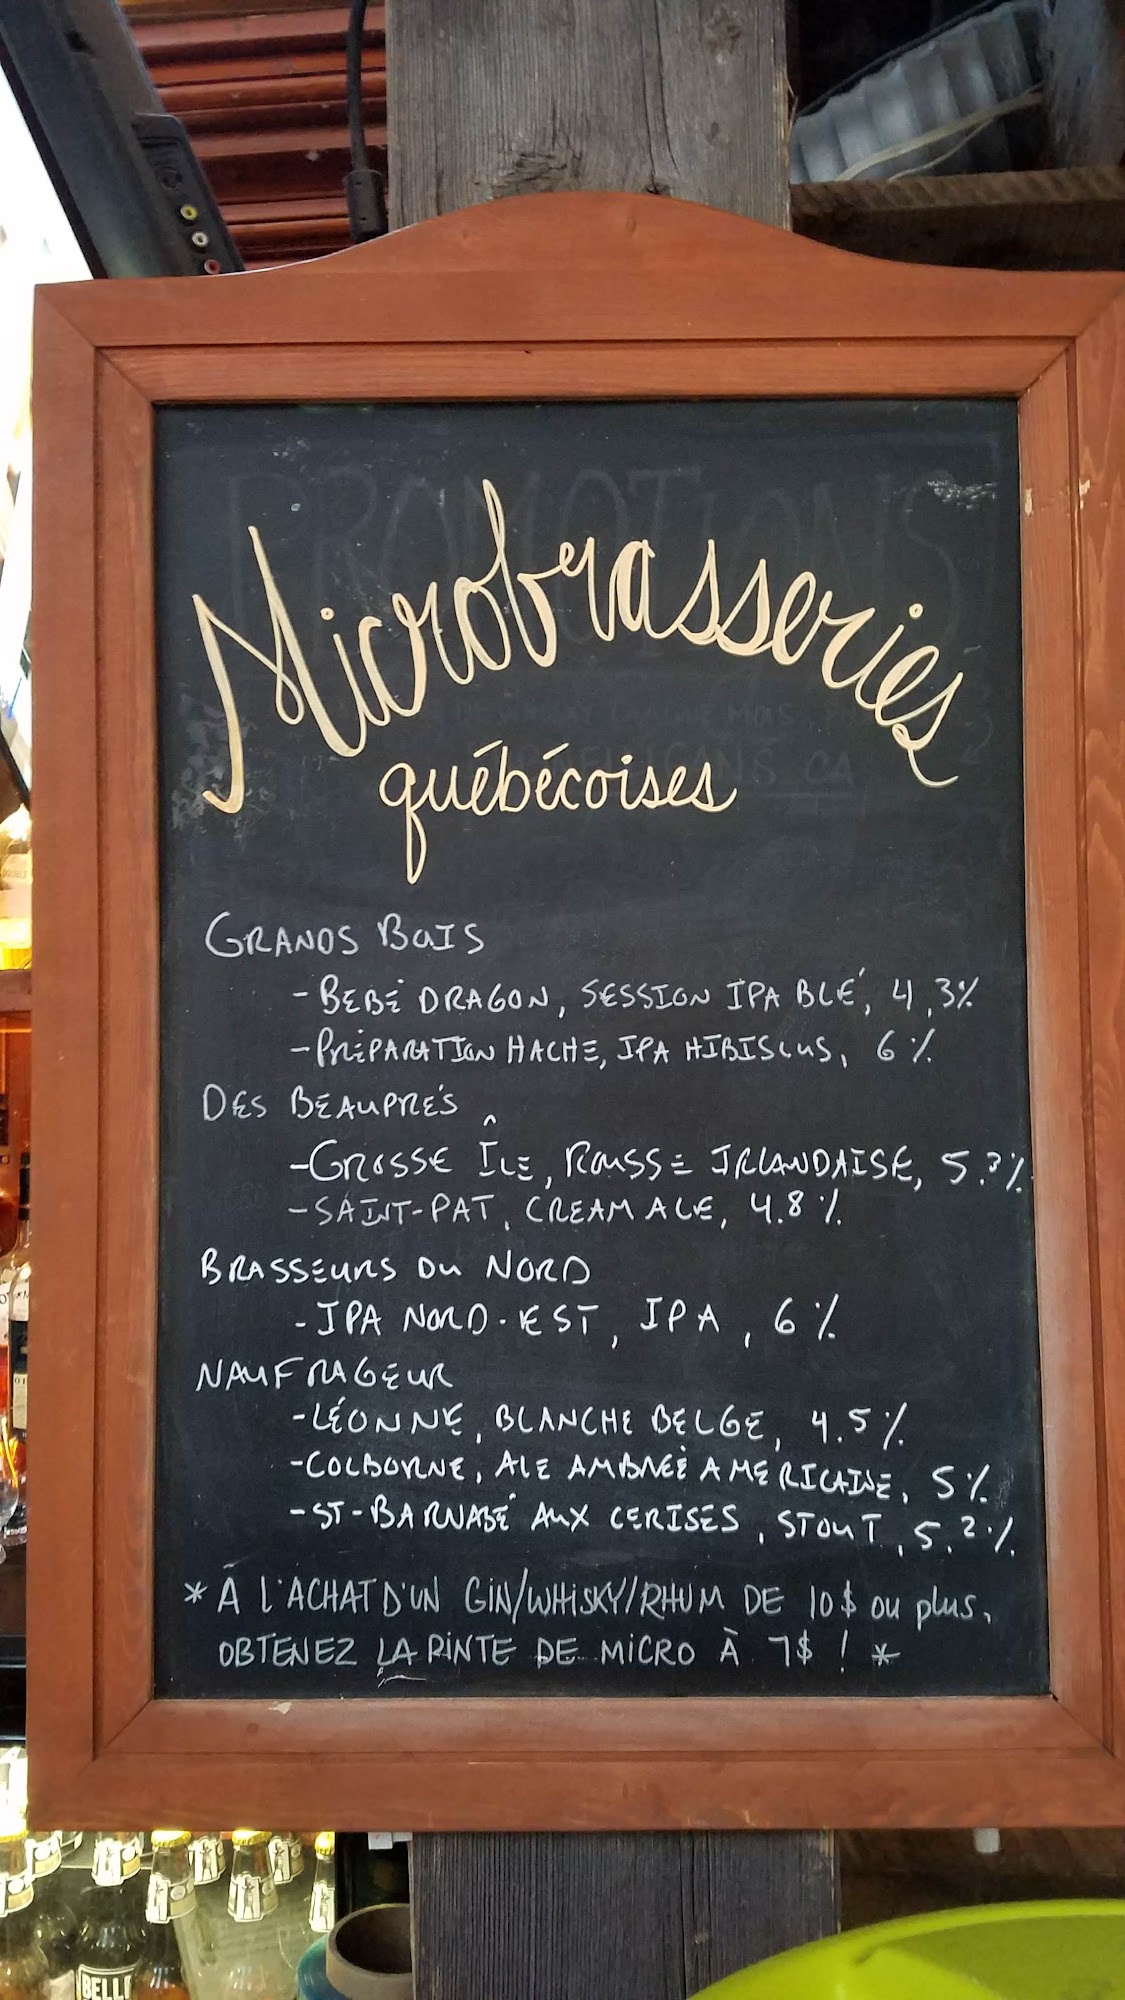 Microbrasseries
québécoises
GRANDS BOIS
- BÉBÉ DRAGON, SESSION IPA BLÉ, 4,3%
- PRÉPARATION HACHE, IPA HIBISCUS, 6%
DES BEAUPRÉS
- GROSSE ÎLE, ROUSSE IRLANDAISE, 5.?%
- SAINT-PAT, CREAM ALE, 4.8%
BRASSEURS DU NORD
- IPA NORD-EST, IPA, 6%
NAUFRAGEUR
- LÉONNE, BLANCHE BELGE, 4.5%
- COLBORNE, ALE AMBRÉE AMERICAINE, 5%
- ST-BARNABÉ AUX CERISES, STOUT, 5.2%
* À L'ACHAT D'UN GIN/WHISKY/RHUM DE 10$ ou plus,
OBTENEZ LA PINTE DE MICRO À 7$ ! *
PROMOTIONS
BELL